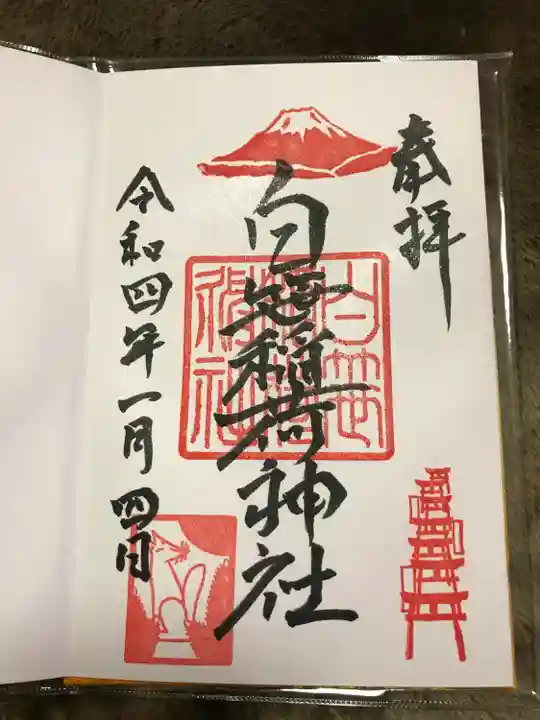 奉拝
白笹稲荷神社
令和四年一月四日
白笹